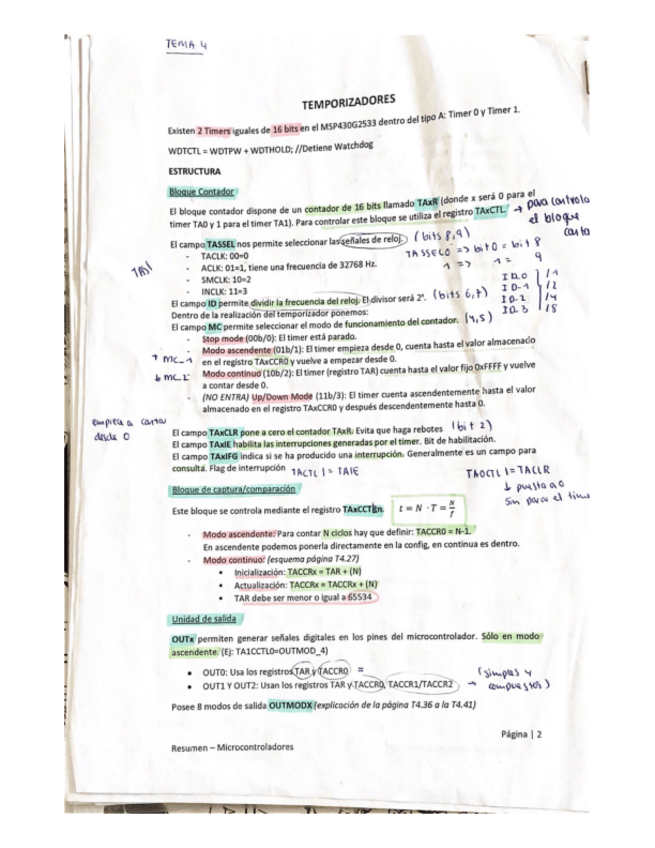 TEMA 4
TEMPORIZADORES
Existen 2 Timers iguales de 16 bits en el MSP430G2533 dentro del tipo A: Timer 0 y Timer 1.
WDTCTL = WDTPW + WDTHOLD; //Detiene Watchdog
ESTRUCTURA
Bloque Contador
El bloque contador dispone de un contador de 16 bits llamado TAxR (donde x será 0 para el
timer TA0 y 1 para el timer TA1). Para controlar este bloque se utiliza el registro TAxCTL.
→ para controla
el bloque
conta
El campo TASSEL nos permite seleccionar las señales de reloj. (bits 8,9)
- TACLK: 00=0
- ACLK: 01=1, tiene una frecuencia de 32768 Hz.
- SMCLK: 10=2
- INCLK: 11=3
TASSEL0 => bit 0 = bit 8
1 => 1 = 9
El campo ID permite dividir la frecuencia del reloj. El divisor será 2ˣ. (bits 6,7)
ID_0 /1
ID_1 /2
ID_2 /4
ID_3 /8
Dentro de la realización del temporizador ponemos:
El campo MC permite seleccionar el modo de funcionamiento del contador. (4,5)
- Stop mode (00b/0): El timer está parado.
- Modo ascendente (01b/1): El timer empieza desde 0, cuenta hasta el valor almacenado
en el registro TAxCCR0 y vuelve a empezar desde 0.
MC_1
- Modo continuo (10b/2): El timer (registro TAR) cuenta hasta el valor fijo 0xFFFF y vuelve
a contar desde 0.
MC_2
- (NO ENTRA) Up/Down Mode (11b/3): El timer cuenta ascendentemente hasta el valor
almacenado en el registro TAxCCR0 y después descendentemente hasta 0.
empieza a contar
desde 0
El campo TAxCLR pone a cero el contador TAxR. Evita que haga rebotes (bit 2)
El campo TAxIE habilita las interrupciones generadas por el timer. Bit de habilitación.
El campo TAxIFG indica si se ha producido una interrupción. Generalmente es un campo para
consulta. Flag de interrupción TACTL |= TAIE
TA0CTL |= TACLR
↓ puesta a 0
sin parar el time
Bloque de captura/comparación
Este bloque se controla mediante el registro TAxCCTLn. t = N · T = N/f
- Modo ascendente: Para contar N ciclos hay que definir: TACCR0 = N-1.
En ascendente podemos ponerla directamente en la config, en continua es dentro.
- Modo continuo: (esquema página T4.27)
• Inicialización: TACCRx = TAR + (N)
• Actualización: TACCRx = TACCRx + (N)
• TAR debe ser menor o igual a 65534
Unidad de salida
OUTx permiten generar señales digitales en los pines del microcontrolador. Sólo en modo
ascendente. (Ej: TA1CCTL0=OUTMOD_4)
• OUT0: Usa los registros TAR y TACCR0 =
• OUT1 Y OUT2: Usan los registros TAR y TACCR0, TACCR1/TACCR2 →
(simples y
compuestos)
Posee 8 modos de salida OUTMODX (explicación de la página T4.36 a la T4.41)
Página | 2
Resumen – Microcontroladores